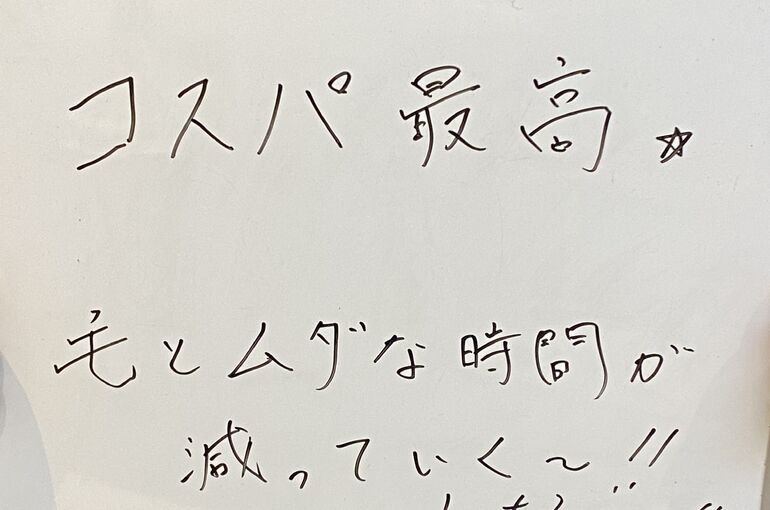 コスパ最高☆
毛とムダな時間が
減っていく～!!